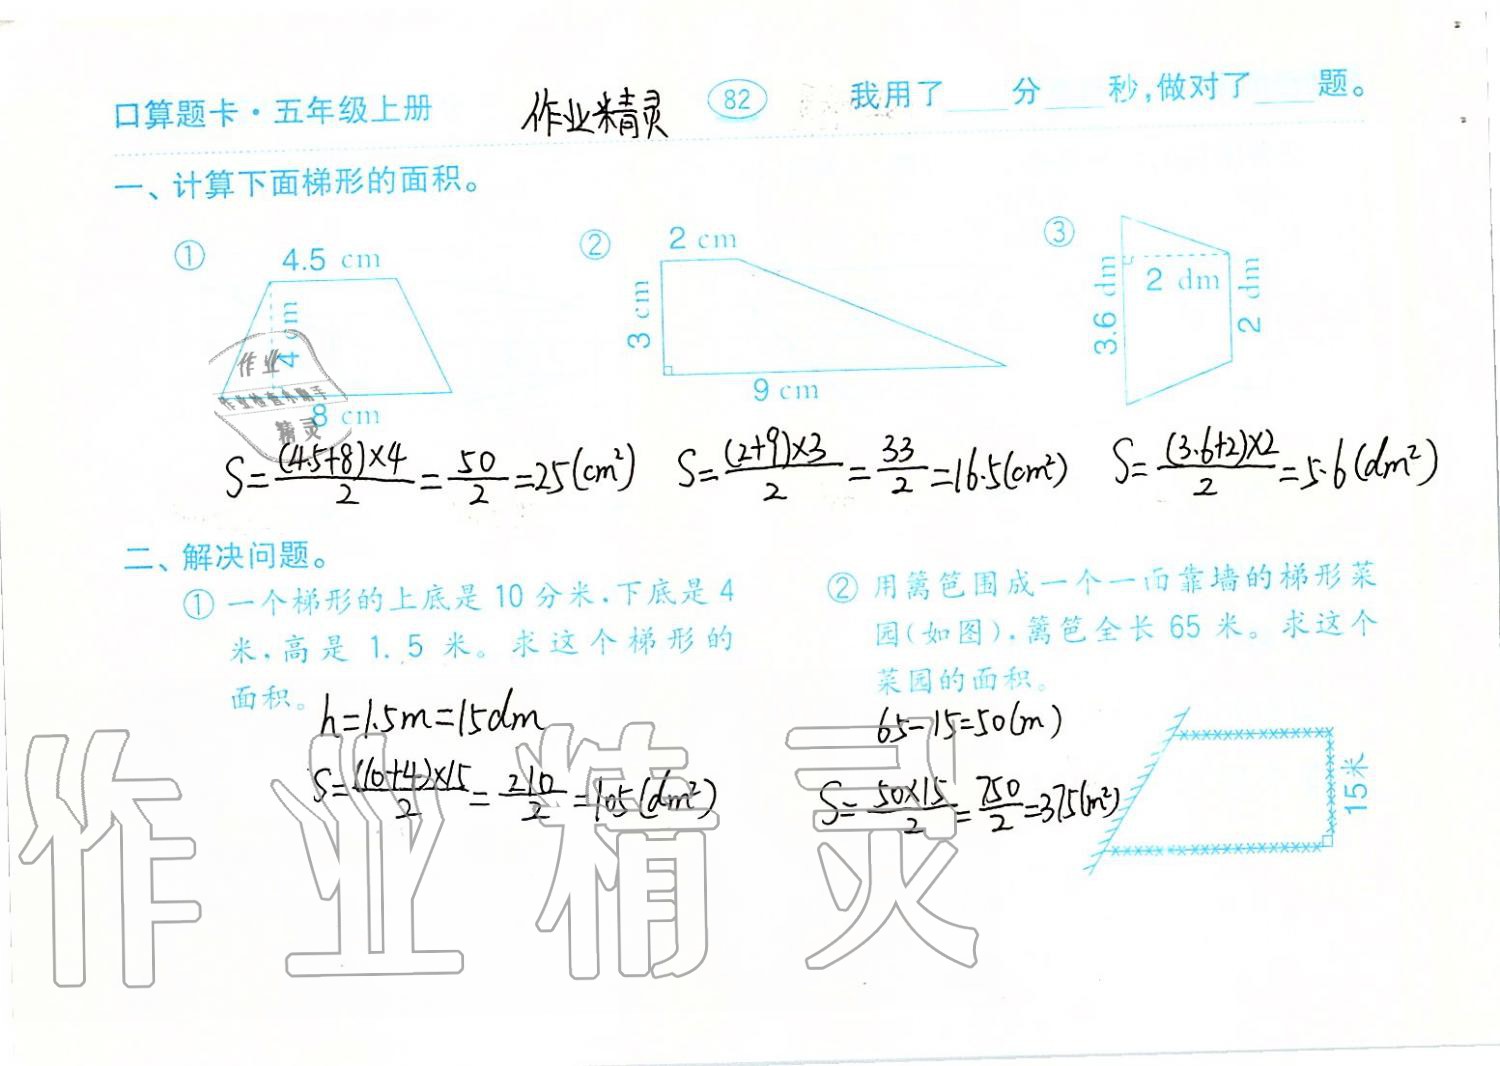 口算题卡·五年级上册 作业精灵 82 我用了____分____秒,做对了____题。
一、计算下面梯形的面积。
① 4.5 cm 4 cm 8 cm
② 2 cm 3 cm 9 cm
③ 3.6 dm 2 dm 2 dm
作业
作业检查小助手
精灵
S=(4.5+8)×4/2=50/2=25(cm²) S=(2+9)×3/2=33/2=16.5(cm²) S=(3.6+2)×2/2=5.6(dm²)
二、解决问题。
①一个梯形的上底是10分米,下底是4
米,高是1.5米。求这个梯形的
面积。
h=1.5m=15dm
S=(10+4)×15/2=210/2=105(dm²)
②用篱笆围成一个一面靠墙的梯形菜
园(如图),篱笆全长65米。求这个
菜园的面积。
65-15=50(m)
S=50×15/2=750/2=375(m²)
15米
作业精灵